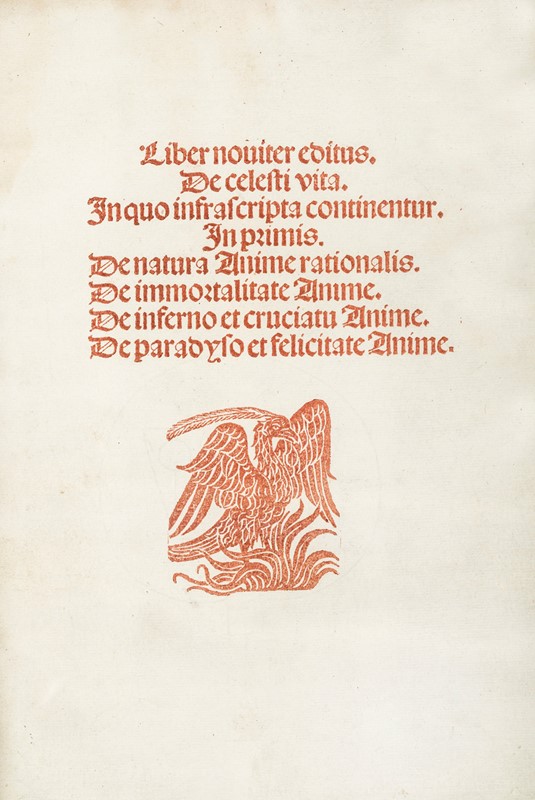 Liber nouiter editus.
De celesti vita.
In quo infrascripta continentur.
In primis.
De natura Anime rationalis.
De immortalitate Anime.
De inferno et cruciatu Anime.
De paradyso et felicitate Anime.